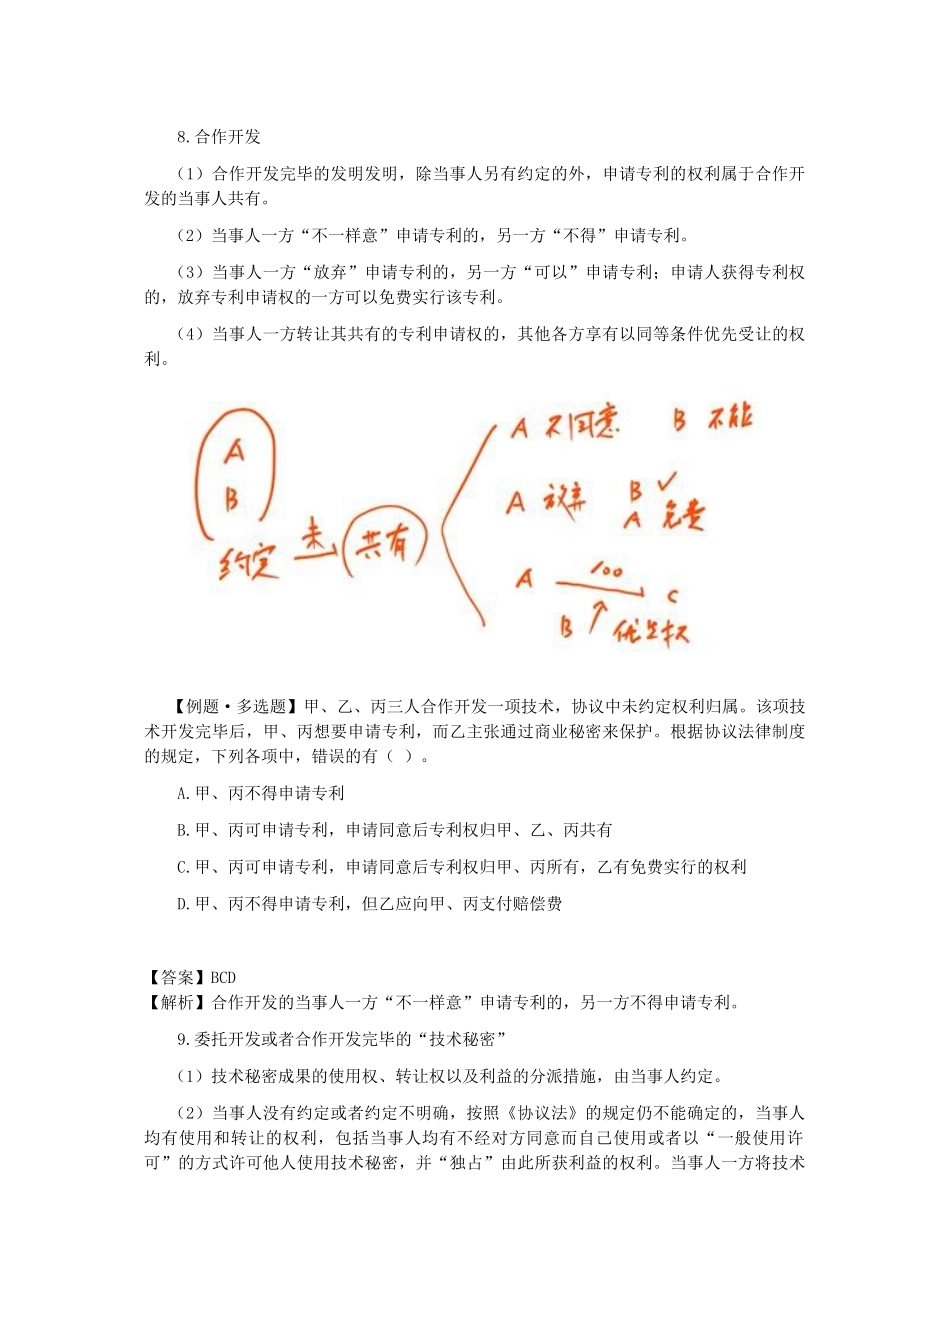 8.合作开发
（1）合作开发完毕的发明发明，除当事人另有约定的外，申请专利的权利属于合作开
发的当事人共有。
（2）当事人一方“不一样意”申请专利的，另一方“不得”申请专利。
（3）当事人一方“放弃”申请专利的，另一方“可以”申请专利；申请人获得专利权
的，放弃专利申请权的一方可以免费实行该专利。
（4）当事人一方转让其共有的专利申请权的，其他各方享有以同等条件优先受让的权
利。
A
B
约定 未 共有
A 不同意 B 不能
A 放弃 B ✓
A 免费
A 100 C
B 优先权
【例题·多选题】甲、乙、丙三人合作开发一项技术，协议中未约定权利归属。该项技
术开发完毕后，甲、丙想要申请专利，而乙主张通过商业秘密来保护。根据协议法律制度
的规定，下列各项中，错误的有（ ）。
A.甲、丙不得申请专利
B.甲、丙可申请专利，申请同意后专利权归甲、乙、丙共有
C.甲、丙可申请专利，申请同意后专利权归甲、丙所有，乙有免费实行的权利
D.甲、丙不得申请专利，但乙应向甲、丙支付赔偿费
【答案】BCD
【解析】合作开发的当事人一方“不一样意”申请专利的，另一方不得申请专利。
9.委托开发或者合作开发完毕的“技术秘密”
（1）技术秘密成果的使用权、转让权以及利益的分派措施，由当事人约定。
（2）当事人没有约定或者约定不明确，按照《协议法》的规定仍不能确定的，当事人
均有使用和转让的权利，包括当事人均有不经对方同意而自己使用或者以“一般使用许
可”的方式许可他人使用技术秘密，并“独占”由此所获利益的权利。当事人一方将技术